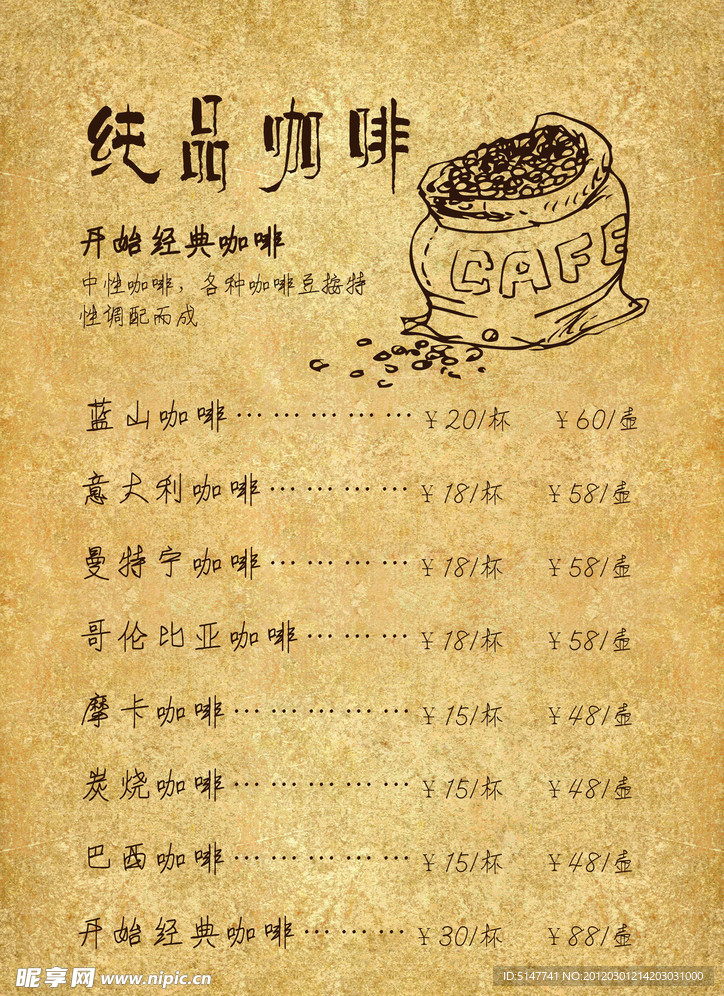 纯品咖啡
CAFE
开始经典咖啡
中性咖啡，各种咖啡豆按特
性调配而成
蓝山咖啡……………… ￥20/杯 ￥60/壶
意大利咖啡…………… ￥18/杯 ￥58/壶
曼特宁咖啡…………… ￥18/杯 ￥58/壶
哥伦比亚咖啡………… ￥18/杯 ￥58/壶
摩卡咖啡……………… ￥15/杯 ￥48/壶
炭烧咖啡……………… ￥15/杯 ￥48/壶
巴西咖啡……………… ￥15/杯 ￥48/壶
开始经典咖啡………… ￥30/杯 ￥88/壶
昵享网 www.nipic.cn
ID:5147741 NO:20120301214203031000